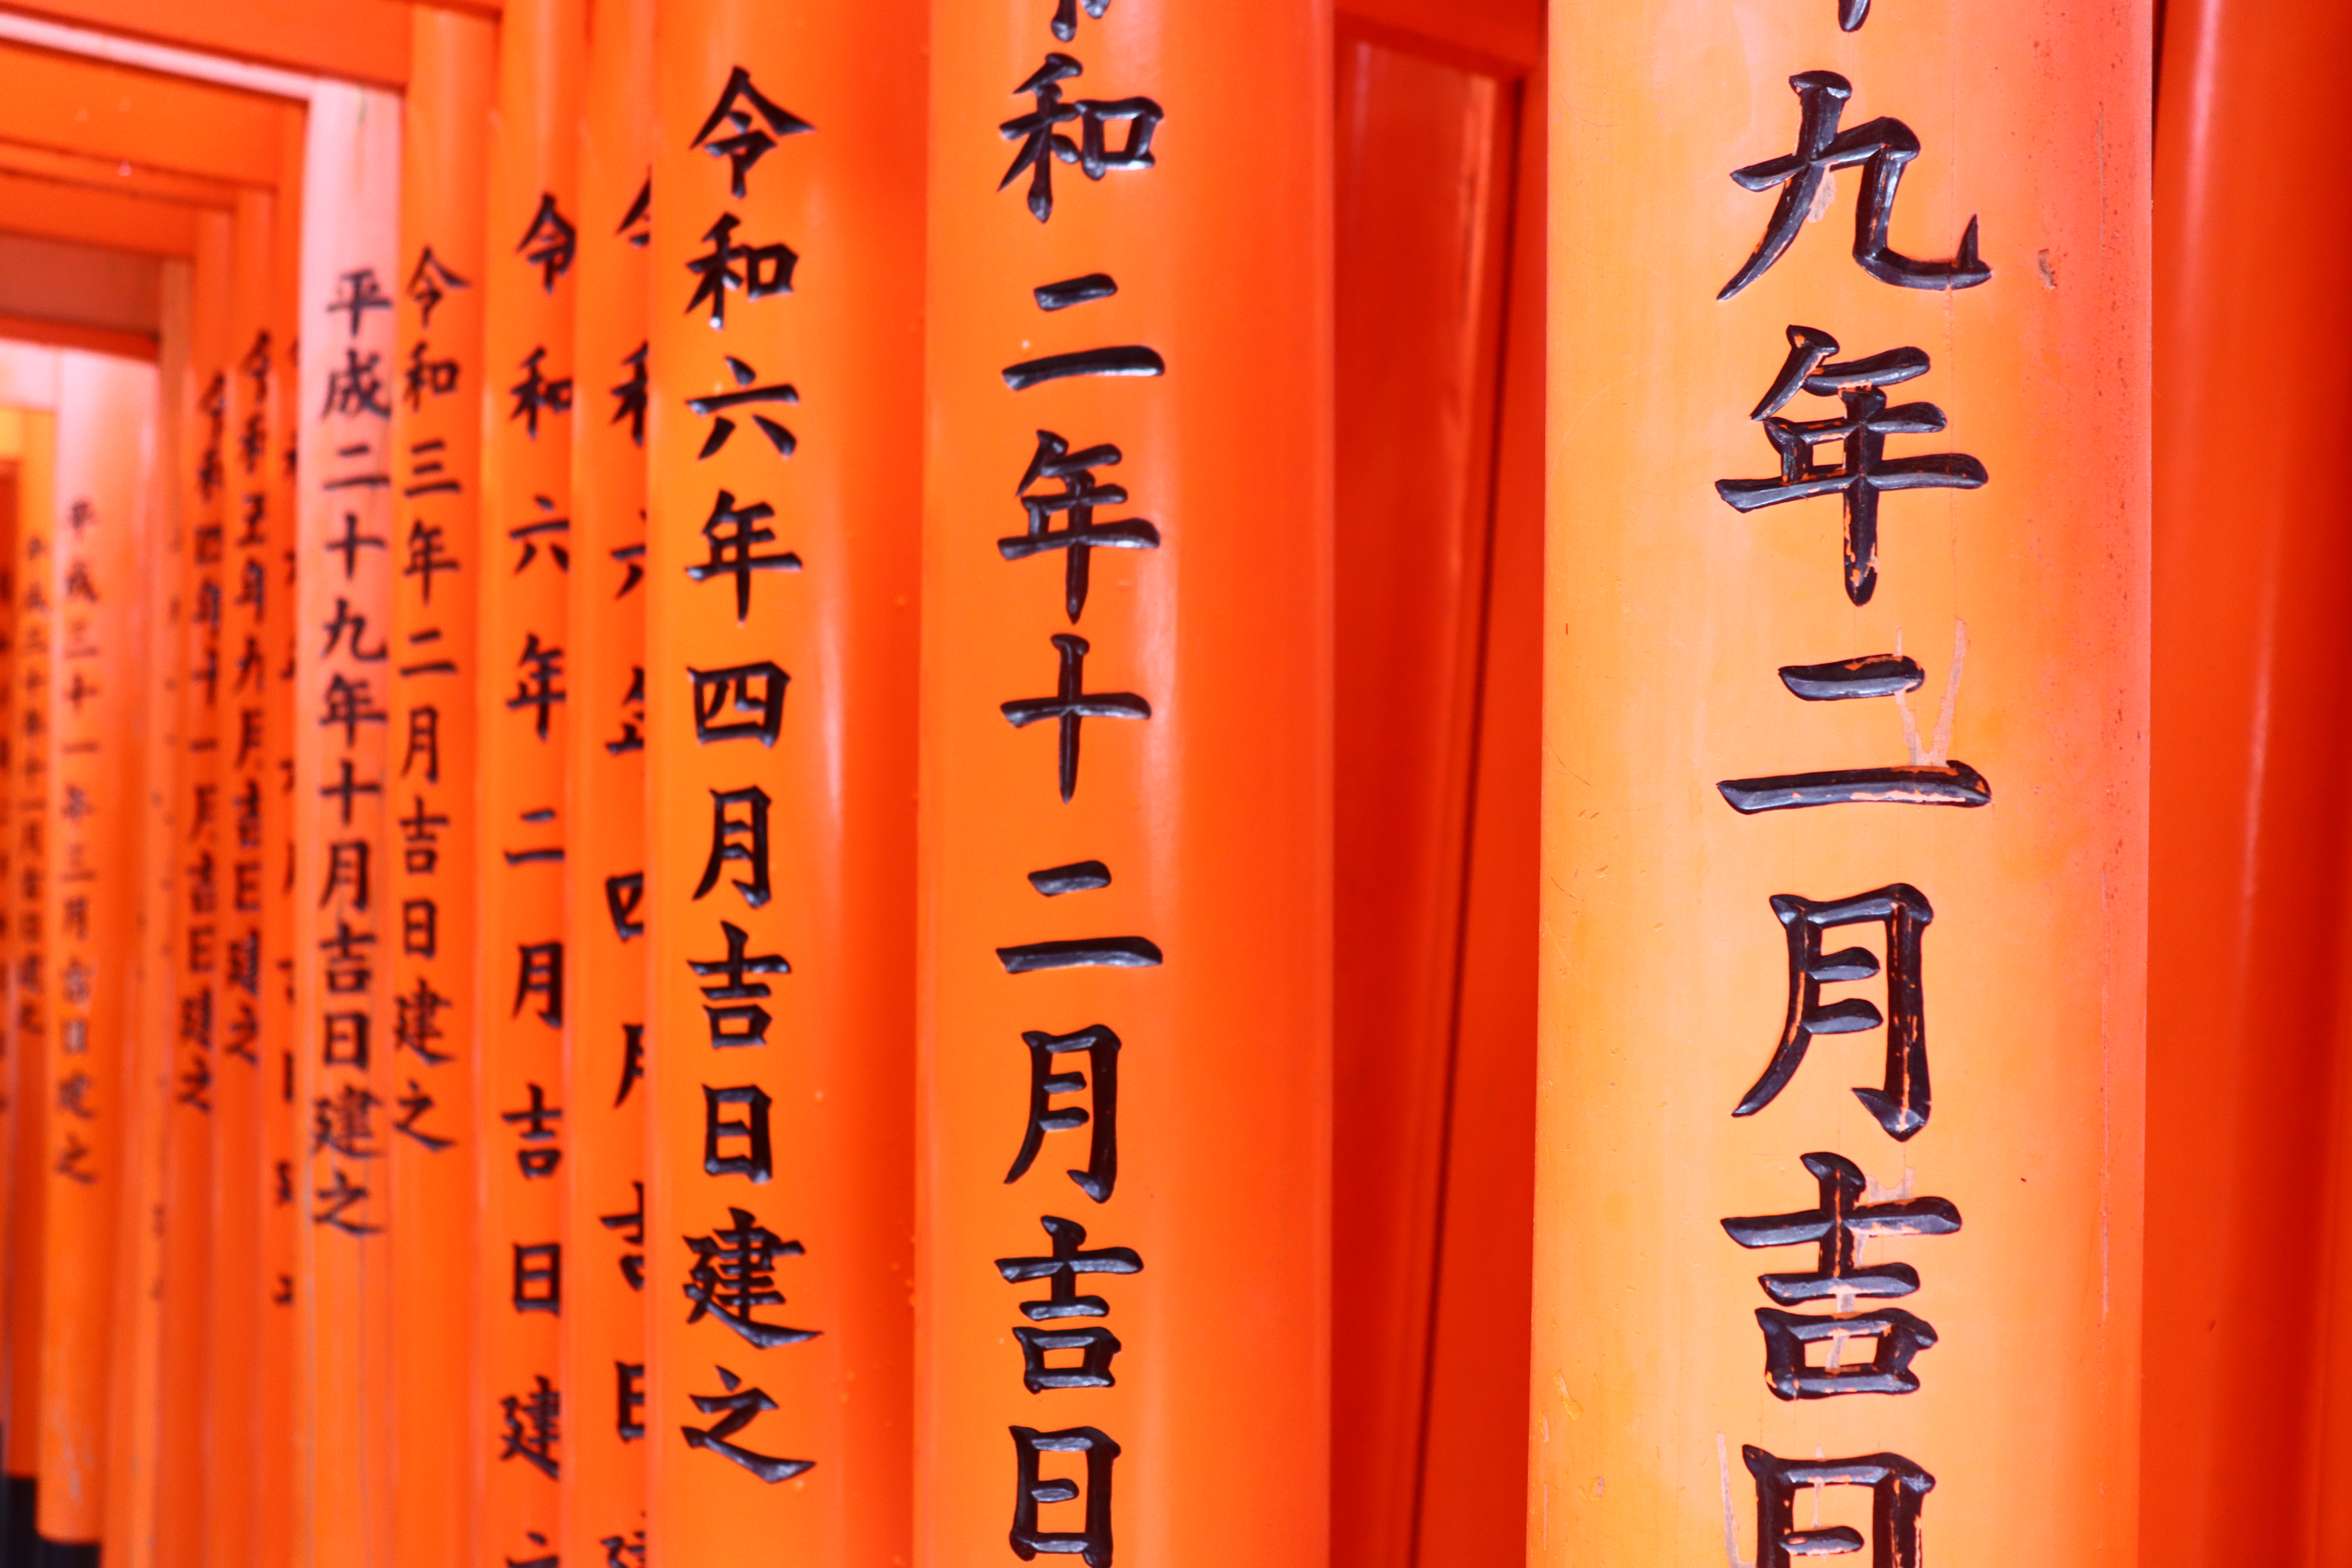 九年二月吉日
和二年十二月吉日
令和六年四月吉日建之
令和六年四月吉日建
令和六年二月吉日建之
令和三年二月吉日建之
平成二十九年十月吉日建之
令和五年九月吉日建之
令和四年十一月吉日建之
平成三十一年三月吉日建之